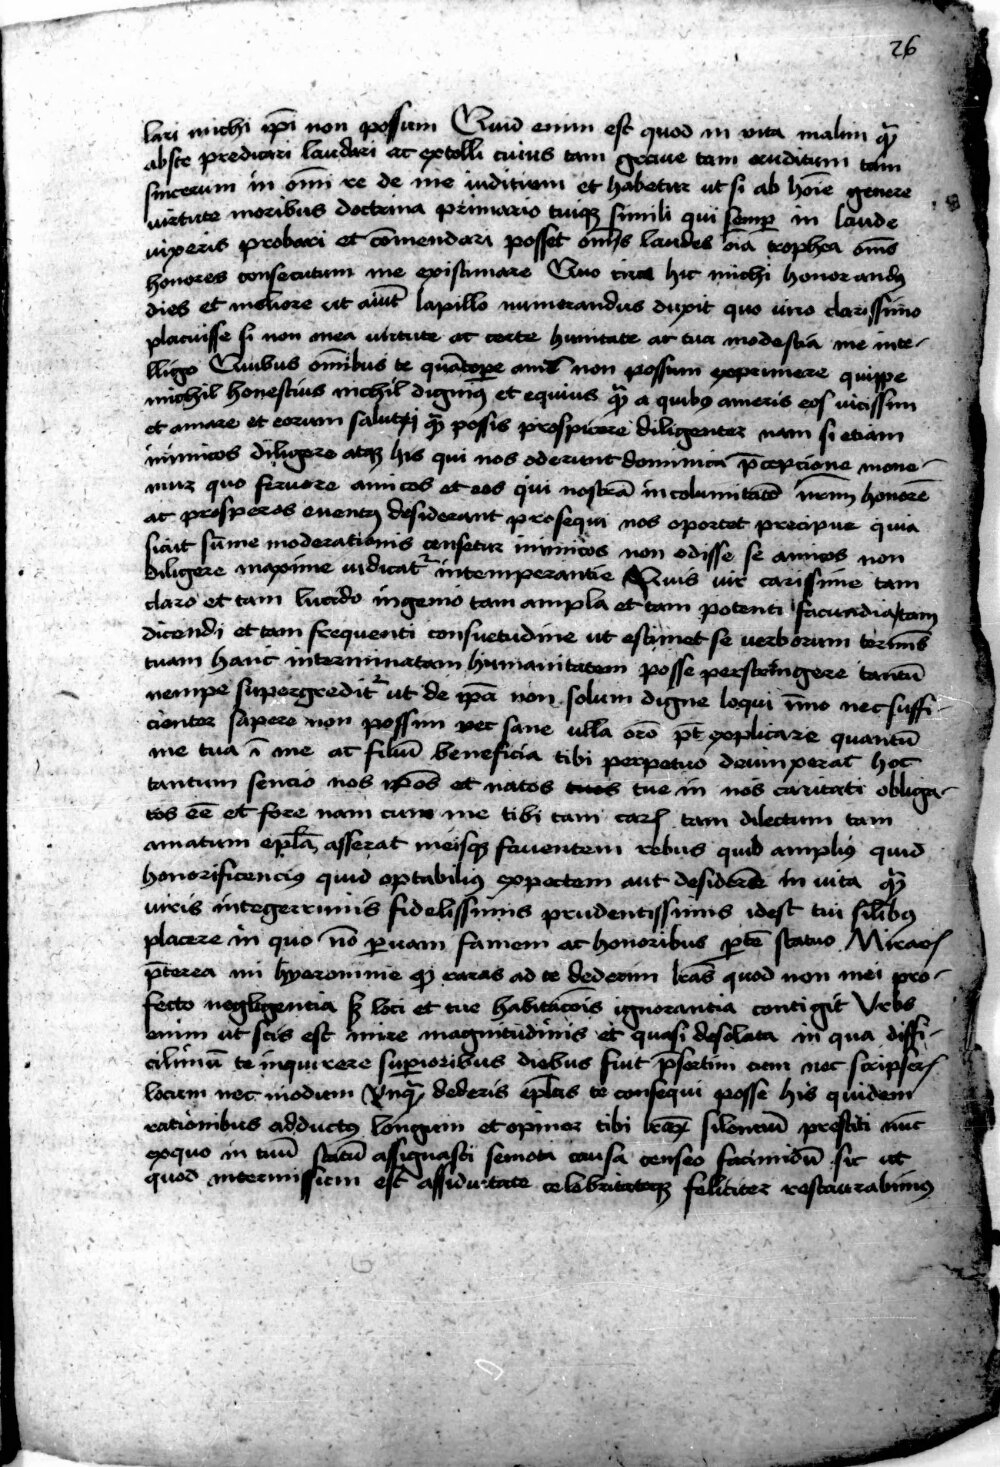 26
lari michi ip̄i non possum Quid enim est quod in vita malim q̄
abste predicari laudari ac extolli cuius tam graue tam eruditum tam
sincerum in om̄i re de me iuditium et habetur ut si ab hoīe genere
virtute moribus doctrina primario tuiqꝫ simili qui semp̄ in laude
vixeris probari et cōmendari posset om̄s laudes oīa trophea om̄s
honores consecutum me existimare Quo circa hic michi honorandꝰ
dies et meliore ut aiūt lapillo numerandus duxit quo viro clarissimo
placuisse si non mea virtute at certe hunitate ac tua modestia me inte-
lligo Quibus om̄ibus te quātope amē non possum exprimere quippe
michil honestius nichil digniꝰ et equius q̄ a quibꝰ ameris eos vicissim
et amare et eorum saluti q̄ possis prospicere diligenter nam si etiam
inimicos diligere atqꝫ his qui nos oderunt dominica p̄cepcione mone-
mur quo feruore amicos et eos qui nostrā incolumitatē nr̄m honorē
ac prosperos euentꝰ desiderant prosequi nos oportet precipue quia
sicut sūme moderationis censetur inimicos non odisse se amicos non
diligere maxime iudicatᷣ intemperantie Quis vir carissime tam
claro et tam lucido ingenio tam ampla et tam potenti facundia tam
dicendi et tam frequenti consuetudine ut estimet se verborum termīs
tuam hanc interminatam humanitatem posse perstringere tantū
nempe supergreditᷣ ut de ip̄a non solum digne loqui īmo nec suffi-
cienter sapere non possim nec sane ulla orō pt̄ explicare quantū
me tua ī me ac filiū beneficia tibi perpetuo deuinxerat hoc
tantum sencio nos et natos tue in nos caritati obliga-
tos eē et fore nam cum me tibi tam carꝫ tam dilectum tam
amatum epl̄a asserat meisqꝫ fauentem rebus quid ampliꝰ quid
honorificenciꝰ quid optabiliꝰ expectem aut desiderē in vita q̄
viris integerrimis fidelissimis prudentissimis idest tui silībꝰ
placere in quo nō puam famem ac honoribus ptē statuo Miraꝝ
p̄terea mi hyeronime qꝫ raras ad te dederim lrās quod non mei pro-
fecto negligentia sꝫ loci et tue habitacōis ignorantia contigit Vrbs
enim ut scis est mire magnitudinis et quasi desolata in qua diffi-
cilimū te inquirere superioribus diebus fuit p̄sertim cum nec scripserꝭ
locum nec modum Vnq̄ dederis epl̄is te consequi posse his quidem
rationibus adductꝰ longum et opinor tibi lrāꝝ silentiū prestiti nūc
exquo in tuū statū assignasti semota causa censeo faciundū sic ut
quod intermissum est assiduitate celebritateqꝫ feliciter restaurabimꝰ